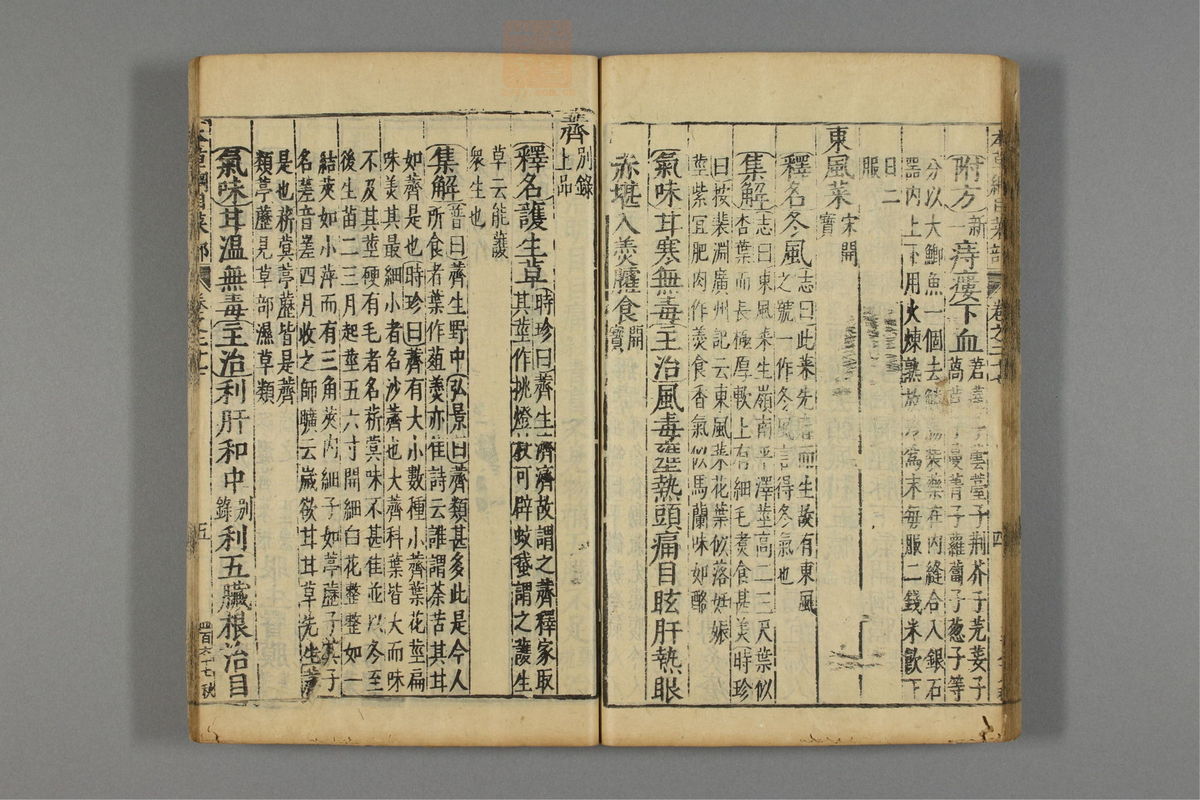 附方新一痔瘻下血
子蕓薹子荆芥子芫荽子
萵苣子蔓菁子蘿蔔子葱子等
分以大鯽魚一個去鱗腸裝藥在內縫合入銀石
器內上下用火煉熟放冷爲末每服二錢米飲下
日二
服
東風菜宋開
寶
釋名冬風志曰此菜先春而生故有東風
之號一作冬風言得冬氣也
集解志曰東風菜生嶺南平澤莖高二三尺葉似
杏葉而長極厚軟上有細毛煑食甚美時珍
曰按裴淵廣州記云東風菜花葉似落妊娠
莖紫宜肥肉作羮食香氣似馬蘭味如酪
氣味甘寒無毒主治風毒壅熱頭痛目眩肝熱眼
赤堪入羮臛食開
寶
薺別錄
上品
釋名護生草時珍曰薺生濟濟故謂之薺釋家取
其莖作挑燈杖可辟蚊蛾謂之護生
草云能護
衆生也
集解普曰薺生野中弘景曰薺類甚多此是今人
所食者葉作葅羮亦佳詩云誰謂荼苦其甘
如薺是也時珍曰薺有大小數種小薺葉花莖扁
味美其最細小者名沙薺也大薺科葉皆大而味
不及其莖硬有毛者名菥蓂味不甚佳並以冬至
後生苗二三月起莖五六寸開細白花整整如一
結莢如小萍而有三角莢內細子如葶藶子其子
名蒫音嵯四月收之師曠云歲欲甘甘草先生薺
是也菥蓂葶藶皆是薺
類葶藶見草部濕草類
氣味甘溫無毒主治利肝和中別
錄利五臟根治目
本草綱目菜部
卷之二十七
四
五